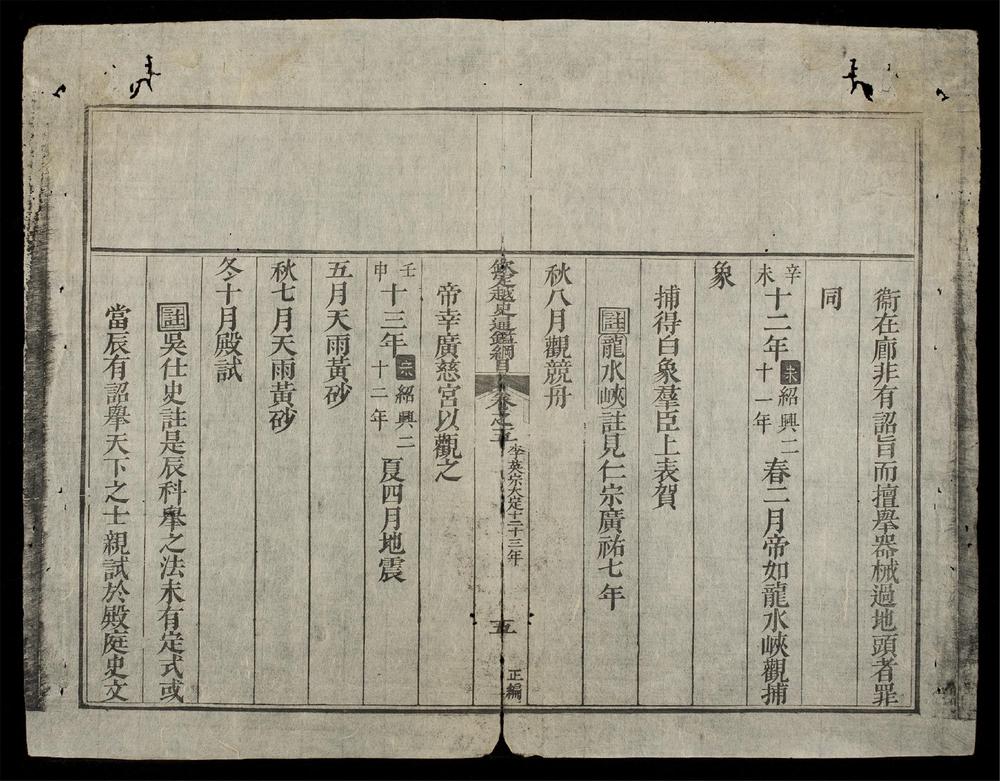 衞在廊非有詔旨而擅擧器械過地頭者罪
同
辛未十二年宋紹興二十一年春二月帝如龍水峽觀捕
象
捕得白象羣臣上表賀
註龍水峽註見仁宗廣祐七年
秋八月觀競舟
欽定越史通鑑綱目卷之五 李英宗大定十二十三年 五 正編
帝幸廣慈宮以觀之
壬申十三年宋紹興二十二年夏四月地震
五月天雨黃砂
秋七月天雨黃砂
冬十月殿試
註吳仕史註是辰科擧之法未有定式或
當辰有詔擧天下之士親試於殿庭史文